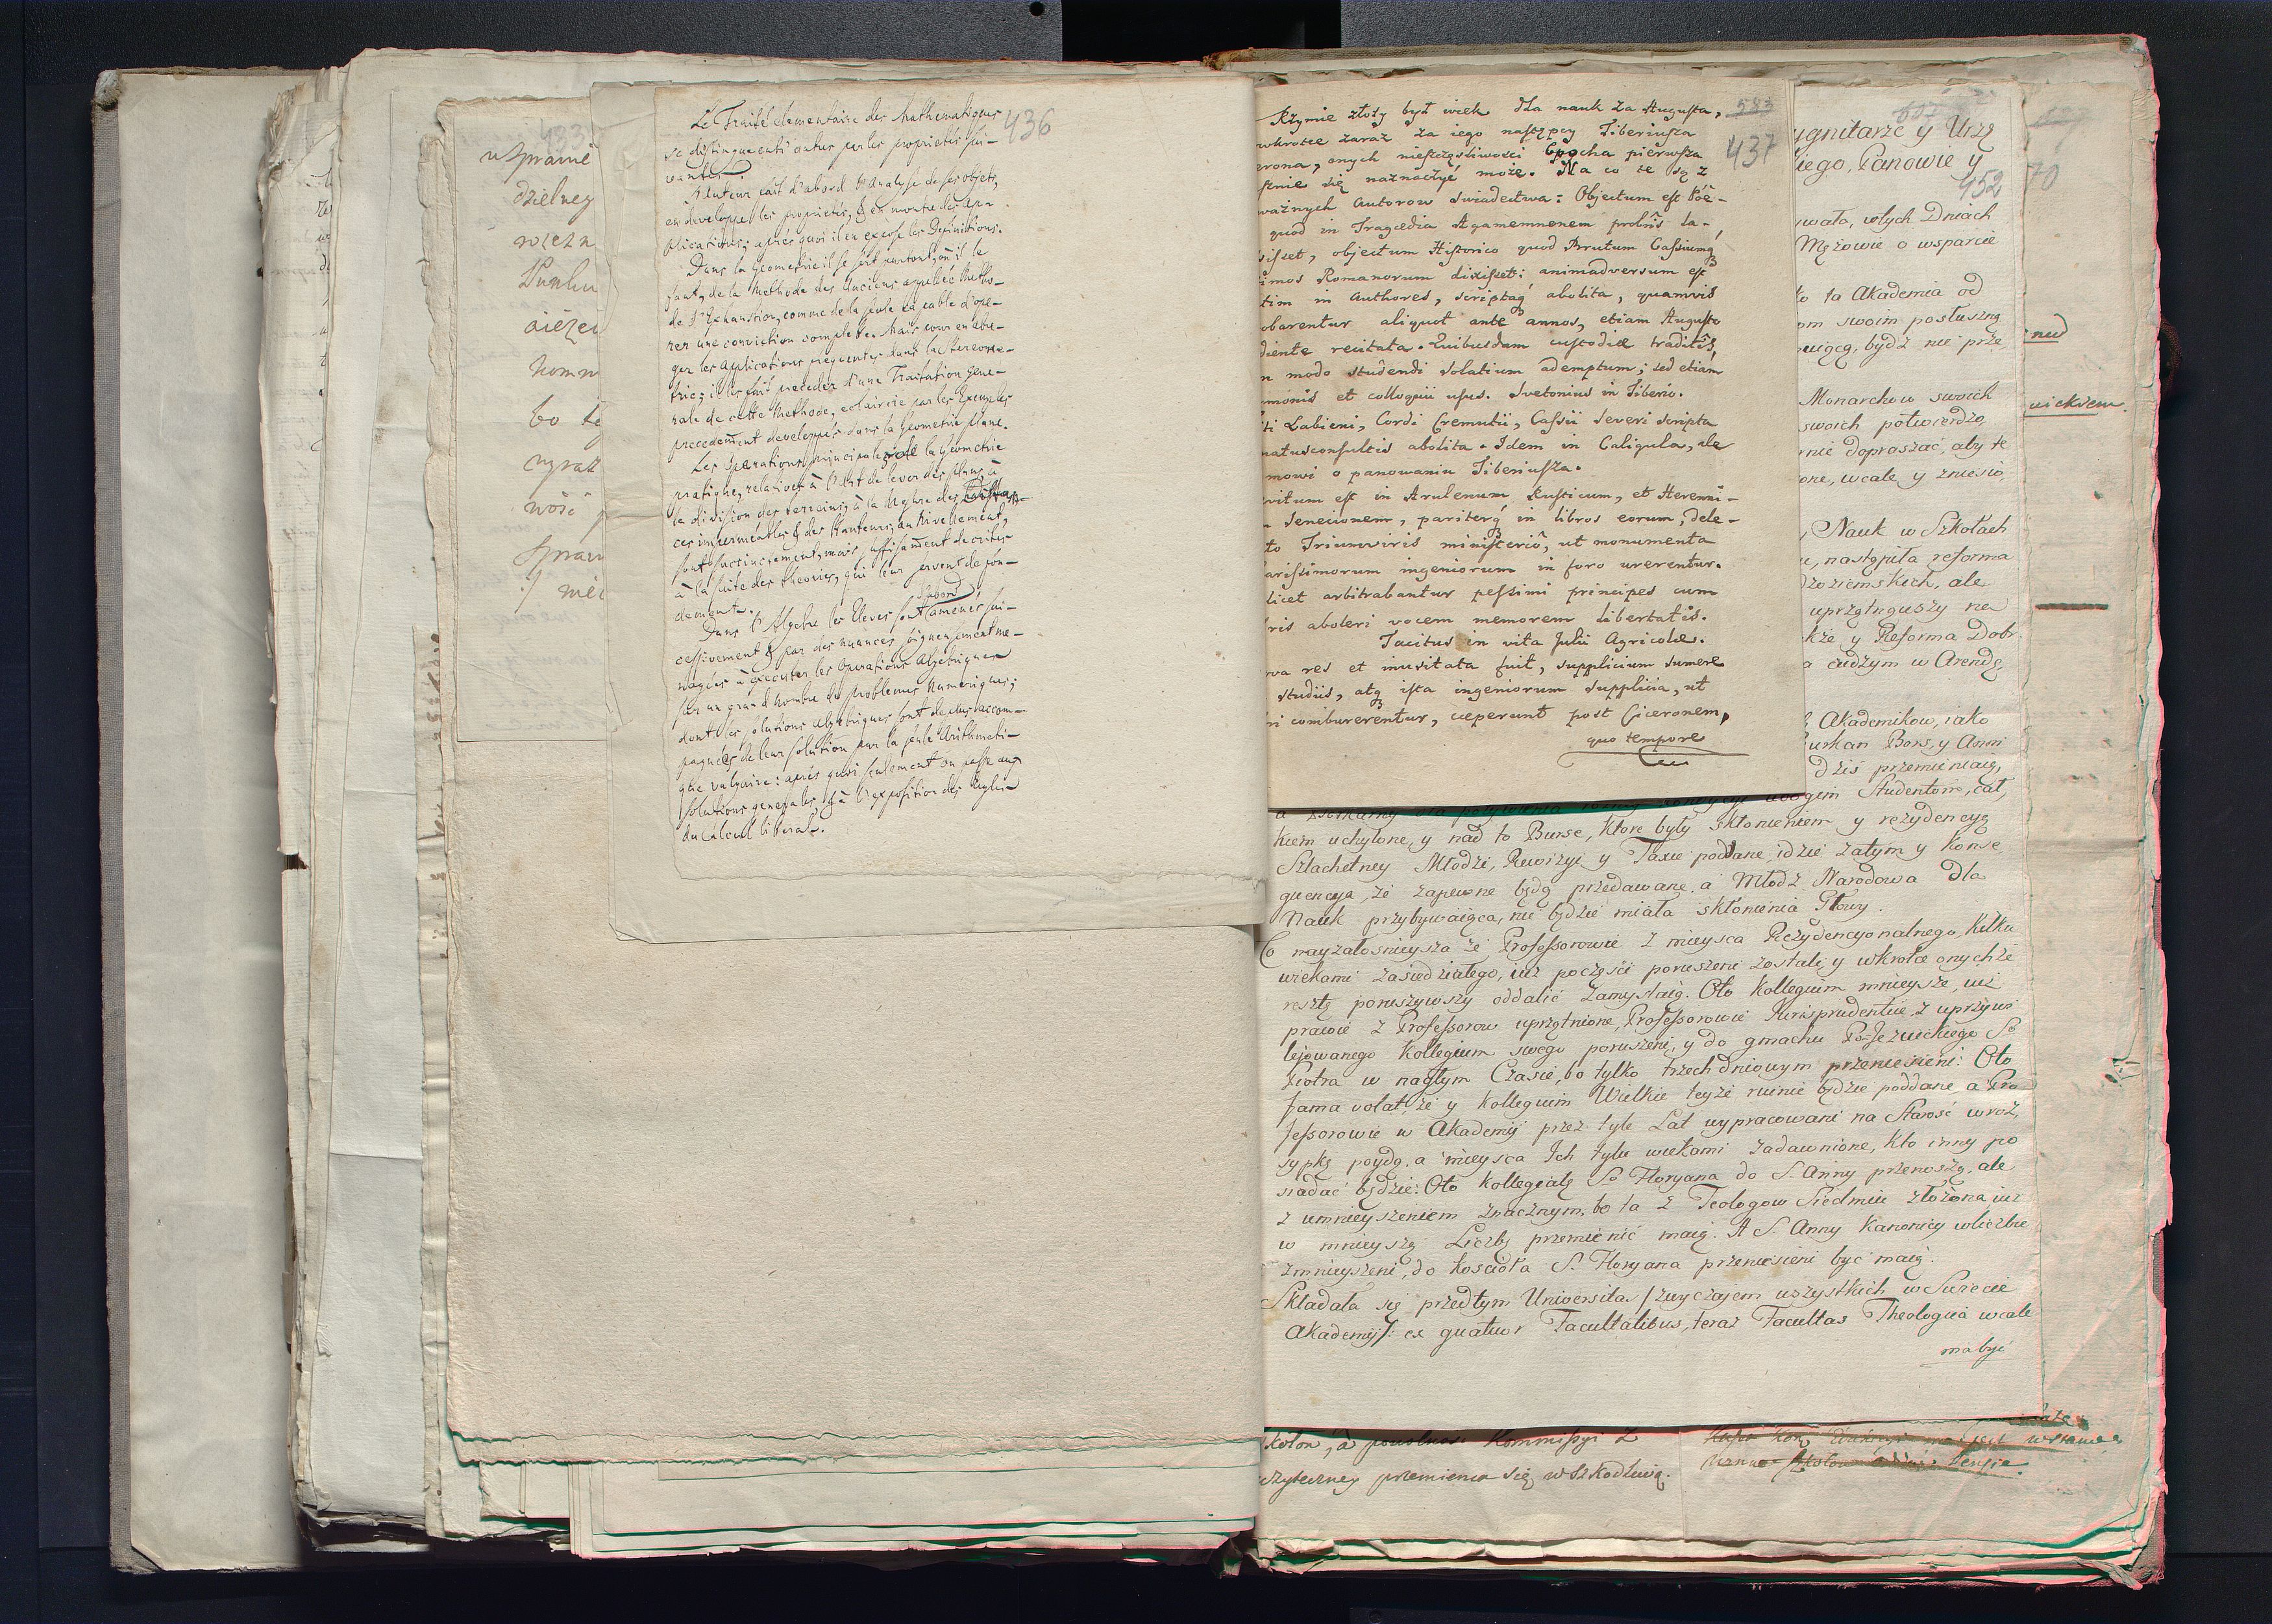 433
w Sprawie
dzielney
bo te
436
Le Traité elementaire des Mathematiques
se distingue entr' autres par les proprietés sui-
vantes.
L'Auteur fait d'abord l'Analyse de ses objets,
en developpe les proprietés, & en montre les ap-
plications; après quoi il en expose les Definitions.
Dans la Geometrie il se sert partout, où il le
faut, de la Methode des Anciens appellée Metho-
de d'Exhaustion, comme de la seule capable d'ope-
rer une conviction complette. Mais pour en abre-
ger les applications frequentes dans la Stereome-
trie; il les fait preceder d'une Traitation gene-
rale de cette Methode, eclaircie par les Exemples
precedemment developpés dans la Geometrie plane.
Les Operations principales de la Geometrie
pratique, relatives à l'Art de lever des plans, à
la division des terreins, à la Mesure des Distan-
ces impermeables & des Hauteurs, au Nivellement,
sont succinctement, mais suffisament decrites
à la suite des Theories, qui leur servent de fon-
dement.
Dans l'Algebre les Eleves sont d'abord amenés sui-
cessivement & par des nuances soigneusement me-
nagées à executer les Operations Algebriques
sur un grand nombre de problemes Numeriques;
dont les solutions Algebriques sont de plus accom-
pagnées de leur solution par la seule Arithmeti-
que vulgaire: après quoi seulement on passe aux
solutions generales, & à l'exposition des Regles
du Calcul litteral.
583
437
Rzymie złoty był wiek dla nauk za Augusta,
wkrotce zaraz za iego następcy Tiberiusza
erona, onych nieszczęśliwości Epocha pierwsza
sznie się naznaczyć może. Na co te są z
ważnych Autorow swiadectwa: Objectum est Poë-
quod in Tragœdia Agamemnonem probris la-
sisset, objectum Historico quod Brutum Cassiumq
imos Romanorum dixisset: animadversum est
tim in Authores, scriptaq abolita, quamvis
obarentur aliquot ante annos, etiam Augusto
diente recitata. Quibusdam custodiæ traditis,
n modo studendi solatium ademptum; sed etiam
monis et colloquii usus. Svetonius in Tiberio.
ti Labieni, Cordi Cremutii, Cassii Severi scripta
natusconsultis abolita. Idem in Caligula, ale
mowi o panowaniu Tiberiusza.
vitum est in Arulenum Rusticum, et Herenni-
Senecionem, pariterq in libros eorum, dele-
to Triumviris ministeriô, ut monumenta
arissimorum ingeniorum in foro urerentur.
licet arbitrabantur pessimi principes cum
ris aboleri vocem memorem libertatis.
Tacitus in vita Julii Agricolæ.
va res et inusitata fuit, supplicium sumere
studiis, atq ista ingeniorum supplicia, ut
ri comburerentur, ceperunt post Ciceronem,
quo tempore
ygnitarze y Urzę
iego, Panowie y
452
70
uwała, wtych Dniach
Mężowie o wsparcie
to ta Akademia od
om swoim posłuszną
uiącą, bydź nie prze
Monarchow swoich
swoich potwierdzo
nie dopraszać, aby te
one, wcale y zniesio,
Nauk w Szkołach
u, nastąpiła reforma
dzoziemskich, ale
uprzątnąuszy na
kże y Reforma Dobr
a cudzym w Arendę,
Akademikow, iako
urkan Bors, y Anni
dziś przemieniaią,
Studentom, cał,
kiem uchylone, y nad to Burse, które były skłonieniem y rezydencyą
Szlachetney Młodzi, Rewizyi y Taxie poddane, idzie zatym y Konse
quencya, że zapewne będą przedawane, a Młodź Narodowa dla
Nauk przybywaiąca, nie będzie miała skłonienia Głowy.
Co nayżałosnieysza że Professorowie z mieysca Rezydencyonalnego, kilku
wiekami zasiedziałego, iuż poczęści poruszeni zostali, y wkrotce onychże
resztę poruszywszy oddalić zamyslaią. Oto Kollegium mnieysze, iuż
prawie z Professorow uprzątnione, Professorowie Jurisprudentiæ, z uprzywi
lejowanego Kollegium swego poruszeni, y do gmachu Po-Jezuickiego So
Piotra w nagłym Czasie, bo tylko trzech dniowym przeniesieni: Oto
fama volat, że y Kollegium Wielkie teyże ruinie będzie poddane a Pro
fessorowie w Akademij przez tyle Lat wypracowani na Starosć wroz,
sypkę poydą, a mieysca Ich tylu wiekami zadawnione, kto inny po
siadać będzie: Oto Kollegiatę So Floryana do S. Anny przenoszą, ale
z umnieyszeniem znacznym, bo ta z Teologow Siedmiu złożona iuż
w mnieyszą Liczbę przemienić maią. A S. Anny Kanonicy wliczbie
zmnieyszeni, do koscioła S. Floryana przeniesieni być maią.
Składała się przedtym Universitas /zwyczajem wszystkich w Swiecie
Akademij/: ex quatuor Facultatibus, teraz Facultas Theologica wcale
ma być
Kommissyi z
użyteczney przemienia się w szkodliwą.